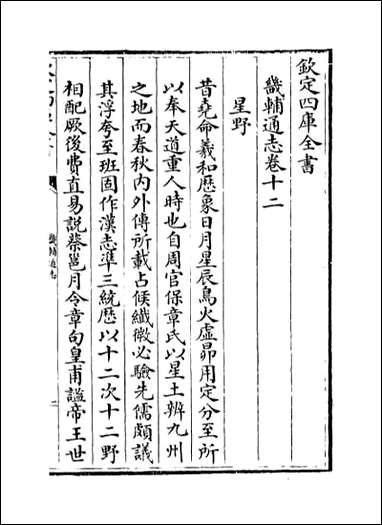 欽定四庫全書
畿輔通志卷十二
星野
昔堯命羲和歷象日月星辰鳥火虛昴用定分至所
以奉天道重人時也自周官保章氏以星土辨九州
之地而春秋內外傳所載占候纖微必驗先儒頗議
其浮夸至班固作漢志準三統歷以十二次十二野
相配厥後費直易說蔡邕月令章句皇甫謐帝王世
畿輔通志